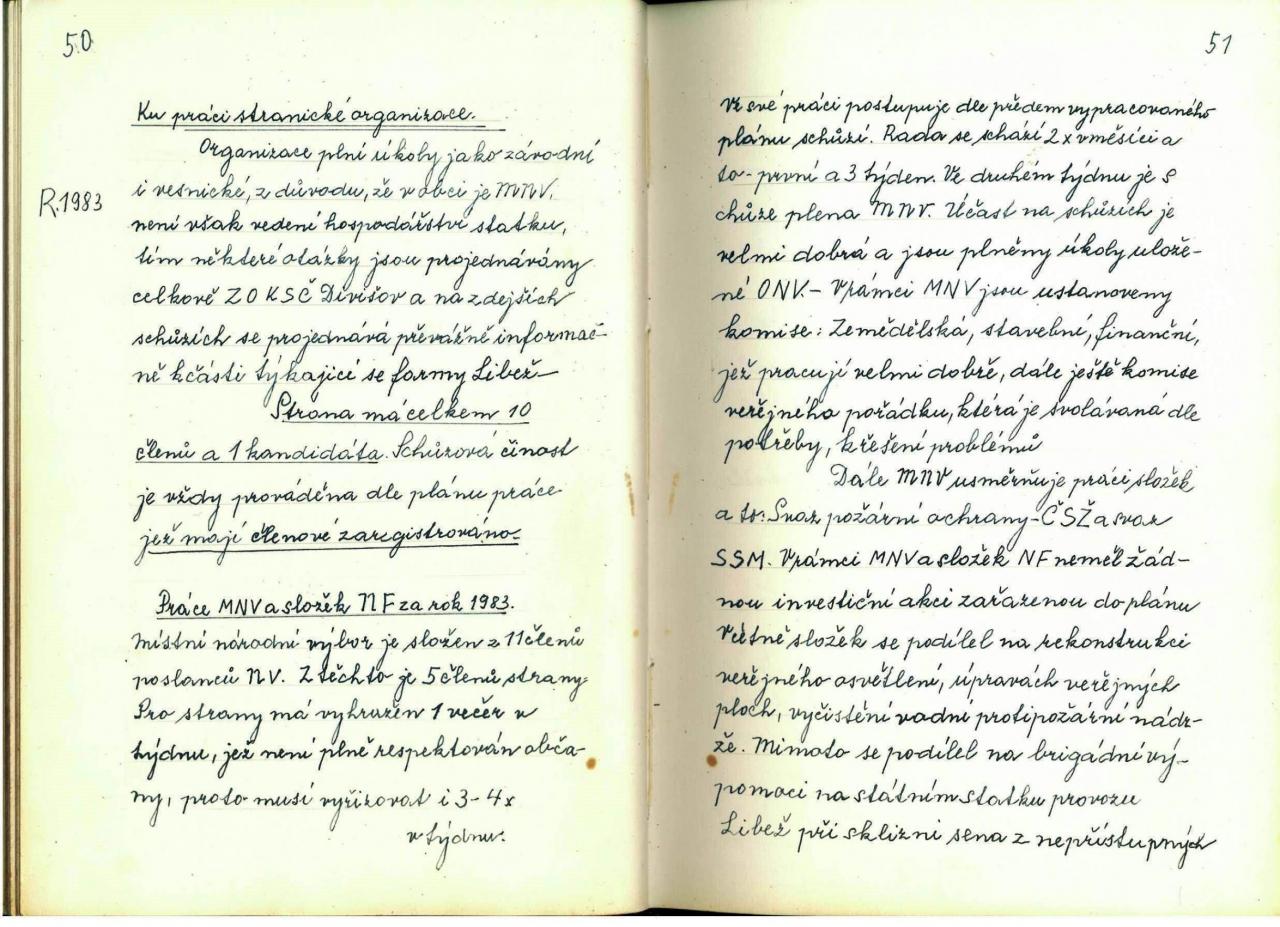 50
Ku práci stranické organizace.
Organizace plní úkoly jako závodní
R.1983
i vesnické, z důvodu, že v obci je MNV,
není však vedení hospodářství statku,
tím některé otázky jsou projednávány
celkově ZO KSČ Divišov a na zdejších
schůzích se projednává převážně informač-
ně k části týkající se farmy Libež
Strana má celkem 10
členů a 1 kandidáta. Schůzová činost
je vždy prováděna dle plánu práce
jež mají členové zaregistrováno.
Práce MNV a složek NF za rok 1983.
Místní národní výbor je složen z 11 členů
poslanců NV. Z těchto je 5 členů strany.
Pro strany má vyhrazen 1 večer v
týdnu, jež není plně respektován obča-
ny, proto musí vyřizovat i 3-4x
v týdnu.
51
Ve své práci postupuje dle předem vypracovaného
plánu schůzí. Rada se schází 2x v měsíci a
to- první a 3 týden. Ve druhém týdnu je s
chůze plena MNV. Účast na schůzích je
velmi dobrá a jsou plněny úkoly ulože-
né ONV.- V rámci MNV jsou ustanoveny
komise: Zemědělská, stavební, finanční,
jež pracují velmi dobře, dále ještě komise
veřejného pořádku, která je svolávaná dle
potřeby, k řešení problémů
Dále MNV usměrňuje práci složek
a to: Svaz požární ochrany-ČSŽ a svaz
SSM. V rámci MNV a složek NF neměl žád-
nou investiční akci zařazenou do plánu
Včetně složek se podílel na rekonstrukci
veřejného osvětlení, úpravách veřejných
ploch, vyčistění vodní protipožární nádr-
že. Mimoto se podílel na brigádní vý-
pomoci na státním statku provozu
Libež při sklizni sena z nepřístupných